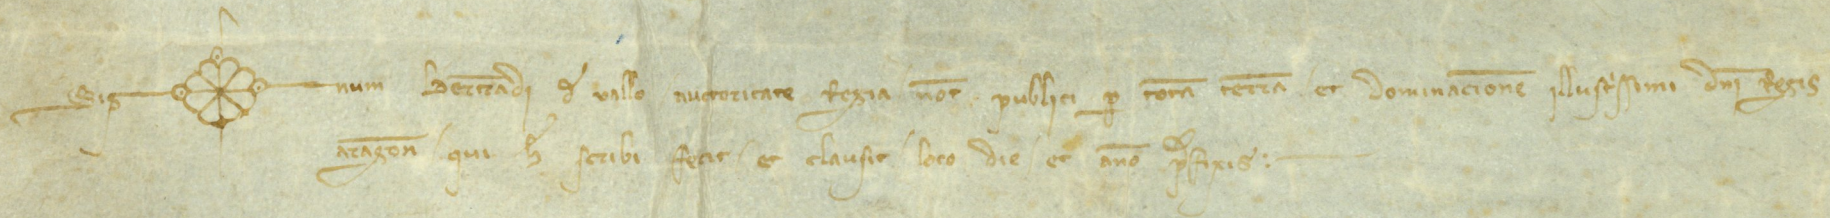 Sig num Bertrandi d vallo auctoritate Regia not publici p tota terra et dominacione illustrissimi dni Regis
aragon qui h scribi fecit et clausit loco die et ano pfixis